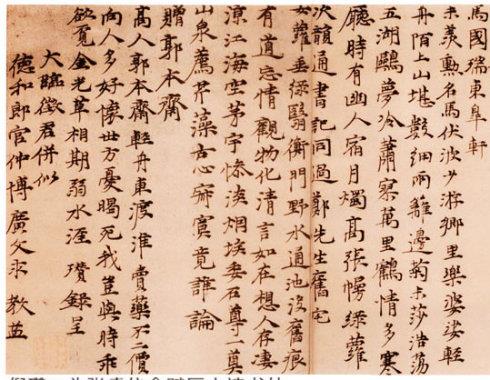 馬國瑞東皐軒
未羨勲名馬伏波少游鄉里樂婆娑輕
舟陌上山堪數細雨籬邊菊未莎浩蕩
五湖鷗夢冷蕭寥萬里鶴情多寒
廳時有幽人宿月燭高張幔綠蘿
次韻通書記同過鄭先生舊宅
女蘿垂綠翳衡門野水通池沒舊痕
有道忘情觀物化清言如在想人存凄
凉江海空茅宇慘淡烟埃委石尊一奠
山泉薦芹藻古心寂寞竟誰論
贈郭本齋
高人郭本齋輕舟東渡淮賣藥不二價
向人多好懷世方憂暍死我豈與時乖
欲覓金光草相期弱水涯 瓚錄呈
大臨徵君併似
德和郎官仲博廣文求 教益